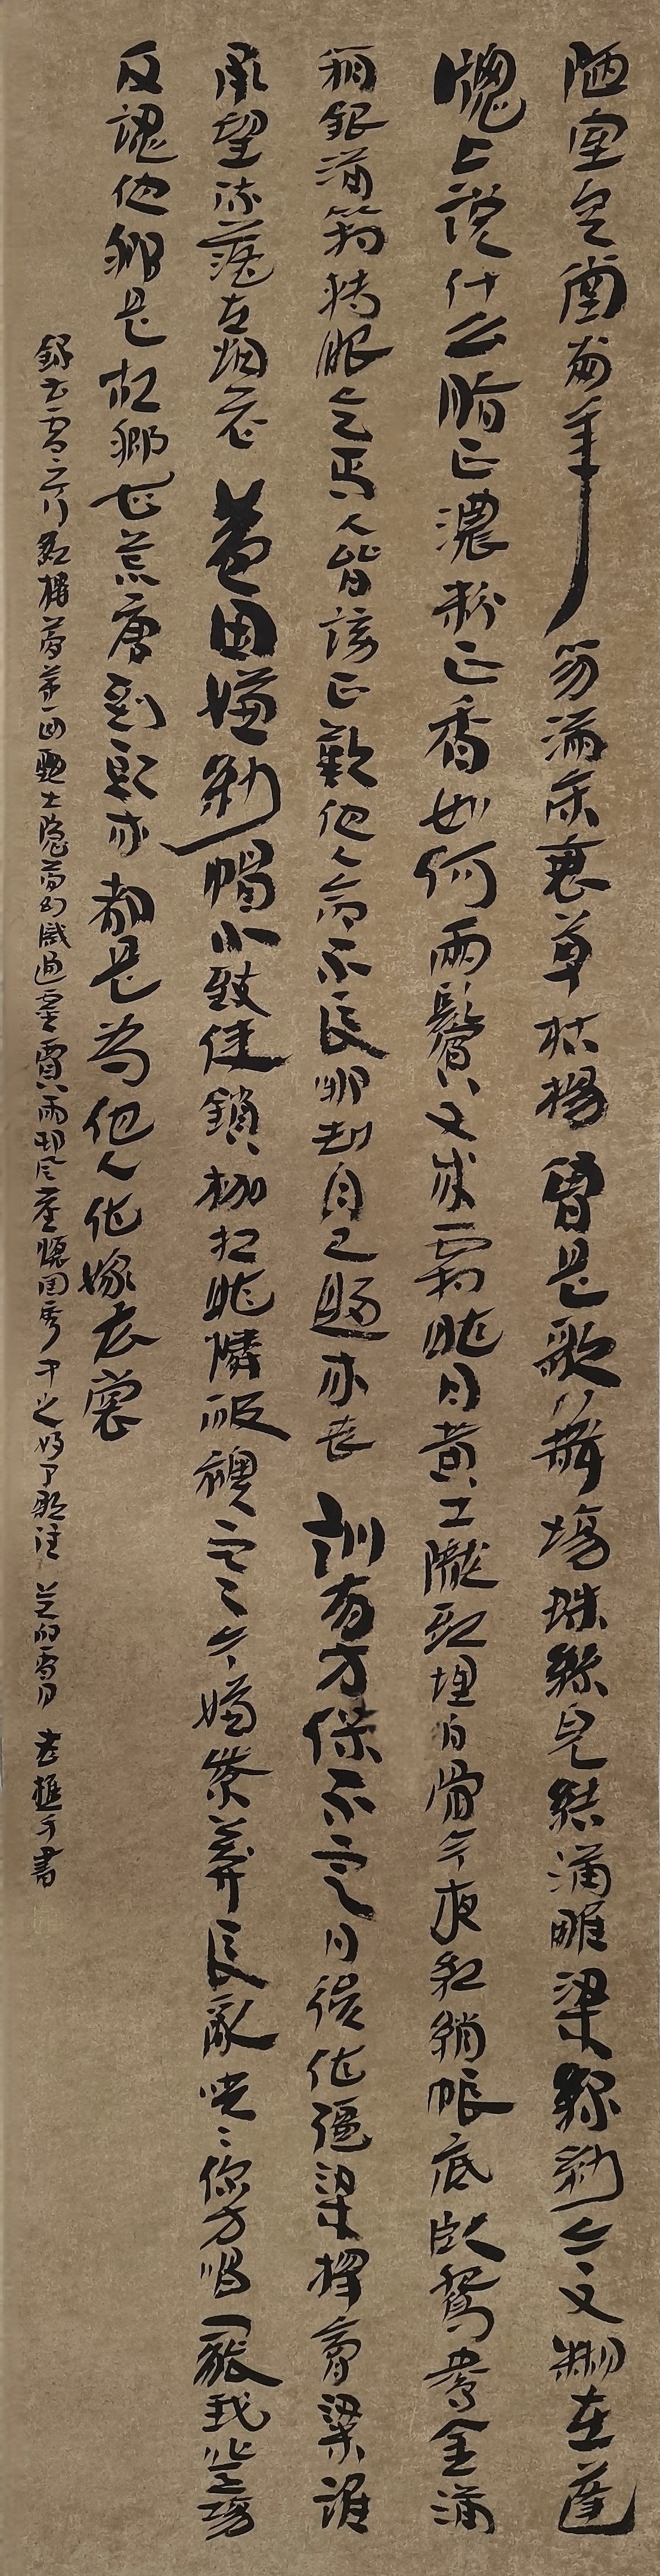 陋室空堂當年笏滿床衰草枯楊曾是歌舞場蛛絲兒結滿雕梁綠紗今又糊在蓬
牕上說什么脂正濃粉正香如何兩鬢又成霜昨日黃土隴頭埋白骨今夜紅綃帳底臥鴛鴦金滿
箱銀滿箱轉眼乞丐人皆謗正歎他人命不長那知自己歸亦喪訓有方保不定日後作彊梁擇膏粱誰
承望流落在烟花巷因嫌紗帽小致使鎖枷扛昨憐破襖寒今嫌紫蟒長亂哄哄你方唱罷我登場
反認他鄉是故鄉甚荒唐到頭來都是為他人作嫁衣裳
錄曹雪芹紅樓夢第一回甄士隱夢幻識通靈賈雨邨風塵懷閨秀中之好了歌注